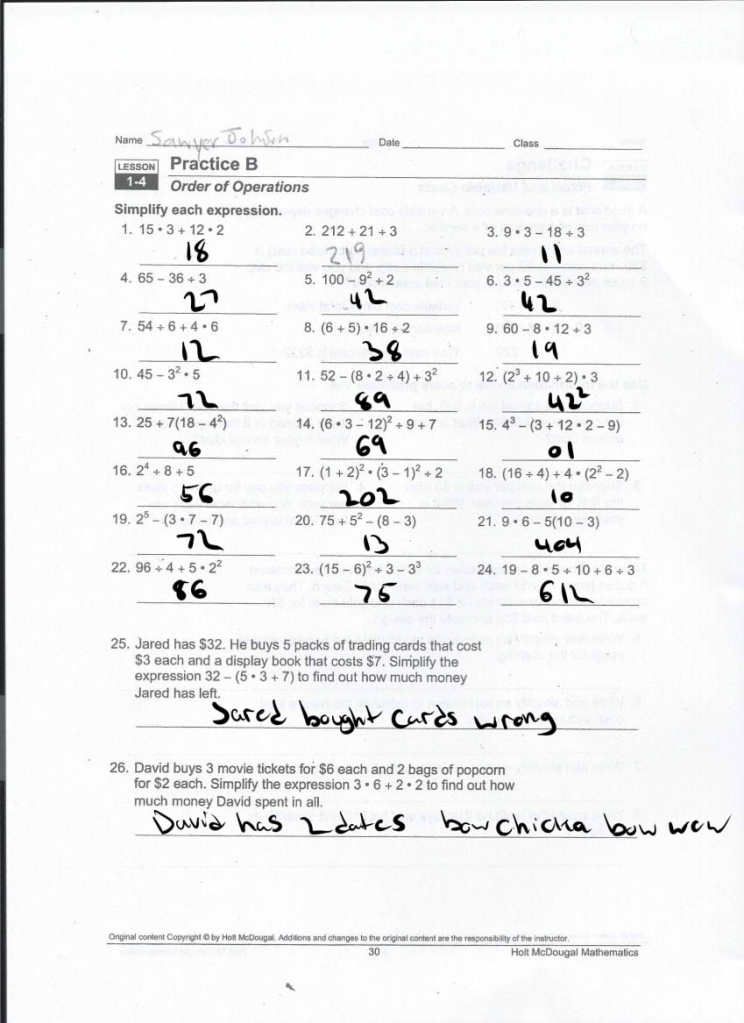 Name Sawyer Johnson Date Class
LESSON 1-4 Practice B
Order of Operations
Simplify each expression.
1. 15 • 3 ÷ 12 • 2 2. 212 + 21 ÷ 3 3. 9 • 3 – 18 ÷ 3
18 219 11
4. 65 – 36 ÷ 3 5. 100 – 9² + 2 6. 3 • 5 – 45 ÷ 3²
27 42 42
7. 54 ÷ 6 + 4 • 6 8. (6 + 5) • 16 ÷ 2 9. 60 – 8 • 12 ÷ 3
12 38 19
10. 45 – 3² • 5 11. 52 – (8 • 2 ÷ 4) + 3² 12. (2³ + 10 ÷ 2) • 3
72 89 42²
13. 25 + 7(18 – 4²) 14. (6 • 3 – 12)² ÷ 9 + 7 15. 4³ – (3 + 12 • 2 – 9)
96 69 01
16. 2⁴ ÷ 8 + 5 17. (1 + 2)² • (3 – 1)² ÷ 2 18. (16 ÷ 4) + 4 • (2² – 2)
56 202 10
19. 2⁵ – (3 • 7 – 7) 20. 75 ÷ 5² – (8 – 3) 21. 9 • 6 – 5(10 – 3)
72 13 404
22. 96 ÷ 4 + 5 • 2² 23. (15 – 6)² ÷ 3 – 3³ 24. 19 – 8 • 5 ÷ 10 + 6 ÷ 3
86 75 612
25. Jared has $32. He buys 5 packs of trading cards that cost
$3 each and a display book that costs $7. Simplify the
expression 32 – (5 • 3 + 7) to find out how much money
Jared has left.
Jared bought cards wrong
26. David buys 3 movie tickets for $6 each and 2 bags of popcorn
for $2 each. Simplify the expression 3 • 6 + 2 • 2 to find out how
much money David spent in all.
David has 2 dates bow chicka bow wow
Original content Copyright © by Holt McDougal. Additions and changes to the original content are the responsibility of the instructor.
30 Holt McDougal Mathematics